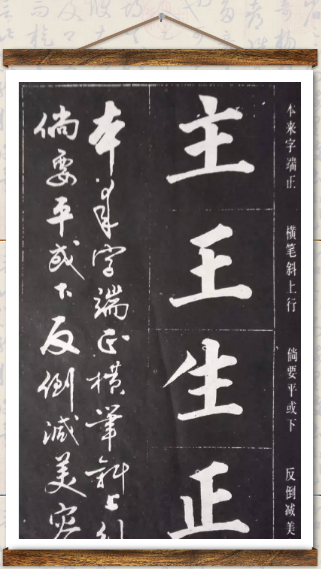 本来字端正 横笔斜上行 倘要平或下 反倒减美
主王生正
本来字端正横笔斜上行
倘要平或下反倒减美容